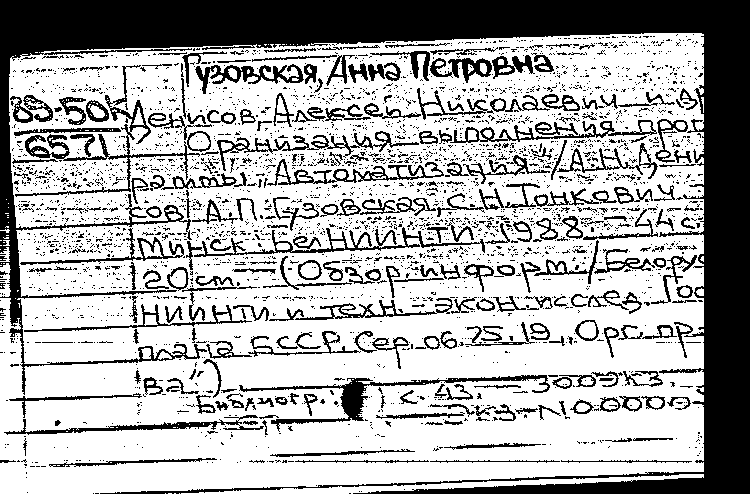 Гузовская, Анна Петровна
89-50К
6571
Денисов, Алексей Николаевич и др
Оранизация выполнения прог
раммы „Автоматизация"/А.Н.Дени
сов, А.П.Гузовская, С.Н.Тонкович.
Минск: БелНИИНТИ, 1988. - 44 с.
20 см. - (Обзор. информ. / Белорус
НИИНТИ и техн.-экон. исслед. Гос
плана БССР. Сер. 06.75.19 „Орг. пр-
ва")
Библиогр.: с. 43. - 300 экз.
Экз. N00000